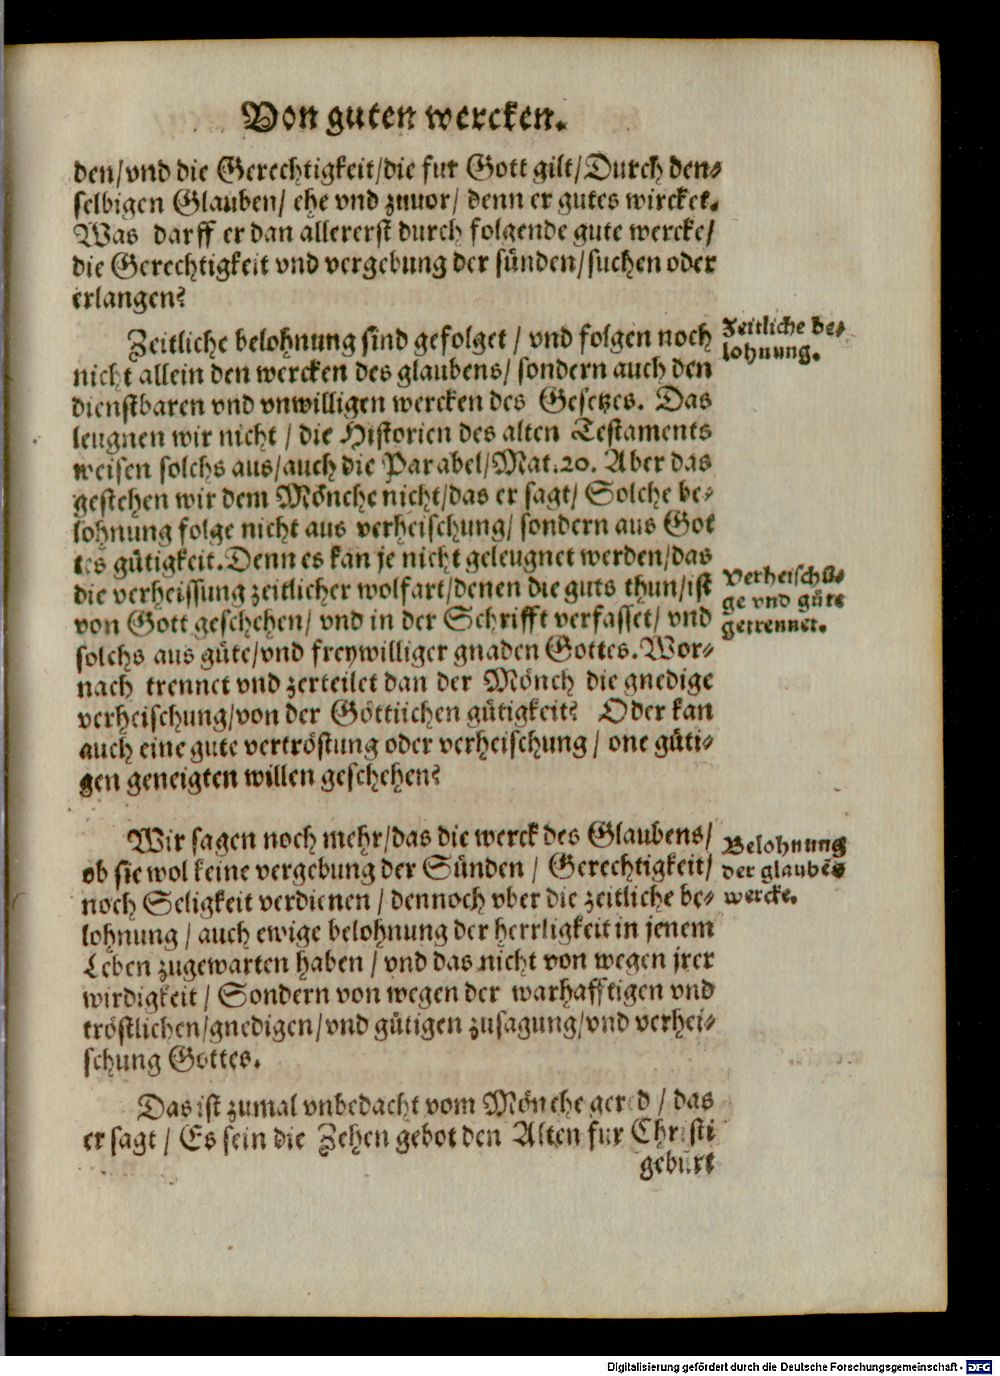 Von guten wercken.
den/vnd die Gerechtigkeit/die fur Gott gilt/Durch den-
selbigen Glauben/ ehe vnd zuuor/ denn er gutes wircket.
Was darff er dan allererst durch folgende gute wercke/
die Gerechtigkeit vnd vergebung der sünden/suchen oder
erlangen?
Zeitliche belohnung sind gefolget / vnd folgen noch
nicht allein den wercken des glaubens/ sondern auch den
dienstbaren vnd vnwilligen wercken des Gesetzes. Das
leugnen wir nicht / die Historien des alten Testaments
weisen solchs aus/auch die Parabel/Mat.20. Aber das
gestehen wir dem Mönche nicht/das er sagt/ Solche be-
lohnung folge nicht aus verheischung/ sondern aus Got
tes gütigkeit. Denn es kan je nicht geleugnet werden/das
die verheissung zeitlicher wolfart/denen die guts thun/ist
von Gott geschehen/ vnd in der Schrifft verfasset/ vnd
solchs aus güte/vnd freywilliger gnaden Gottes. Wor-
nach trennet vnd zerteilet dan der Mönch die gnedige
verheischung/von der Göttlichen gütigkeit? Oder kan
auch eine gute vertröstung oder verheischung / one güti-
gen geneigten willen geschehen?
Wir sagen noch mehr/das die werck des Glaubens/
ob sie wol keine vergebung der Sünden / Gerechtigkeit/
noch Seligkeit verdienen / dennoch vber die zeitliche be-
lohnung / auch ewige belohnung der herrligkeit in jenem
Leben zugewarten haben / vnd das nicht von wegen jrer
wirdigkeit / Sondern von wegen der warhafftigen vnd
tröstlichen/gnedigen/vnd gütigen zusagung/vnd verhei-
schung Gottes.
Das ist zumal vnbedacht vom Mönche geredt / das
er sagt / Es sein die Zehen gebot den Alten fur Christi
geburt
Zeitliche be-
lohnung.
Verheischū-
ge vnd güte
getrennet.
Belohnung
der glaubēs
wercke.
Digitalisierung gefördert durch die Deutsche Forschungsgemeinschaft - DFG